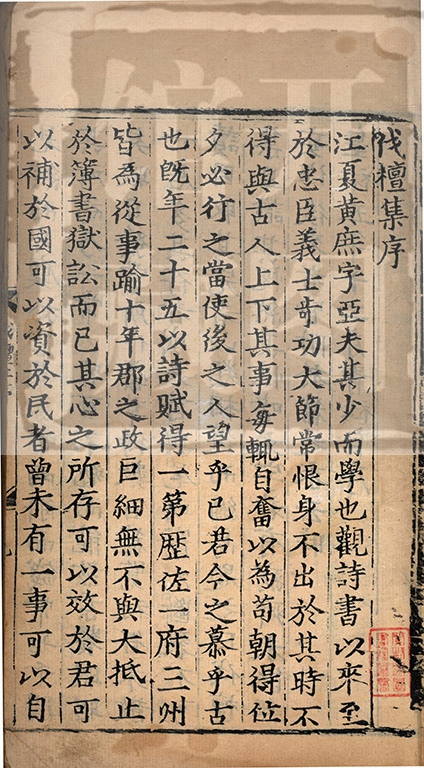 伐檀集序
江夏黃庶字亞夫其少而學也觀詩書以來至
於忠臣義士奇功大節常恨身不出於其時不
得與古人上下其事每輒自奮以為苟朝得位
夕必行之當使後之人望乎已若今之慕乎古
也既年二十五以詩賦得一第歷佐一府三州
皆為從事踰十年郡之政巨細無不與大抵止
於簿書獄訟而已其心之所存可以效於君可
以補於國可以資於民者曾未有一事可以自